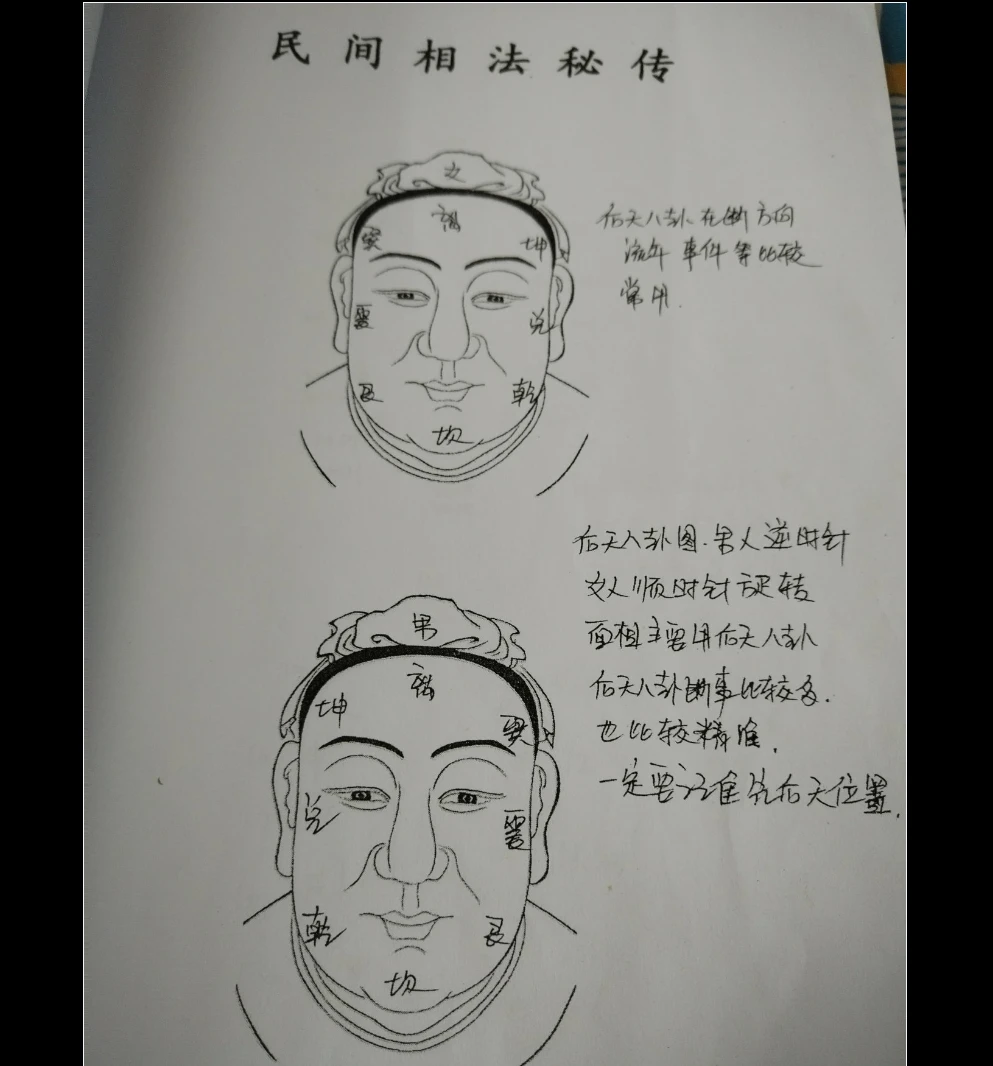 民间相法秘传
女
離
巽
坤
震
兑
艮
乾
坎
后天八卦在断方向
流年 事件等比较
常用.
后天八卦图.男人逆时针
女人顺时针旋转
面相主要用后天八卦
后天八卦断事比较多.
也比较精准.
一定要记准后天位置.
男
離
坤
巽
兑
震
乾
艮
坎